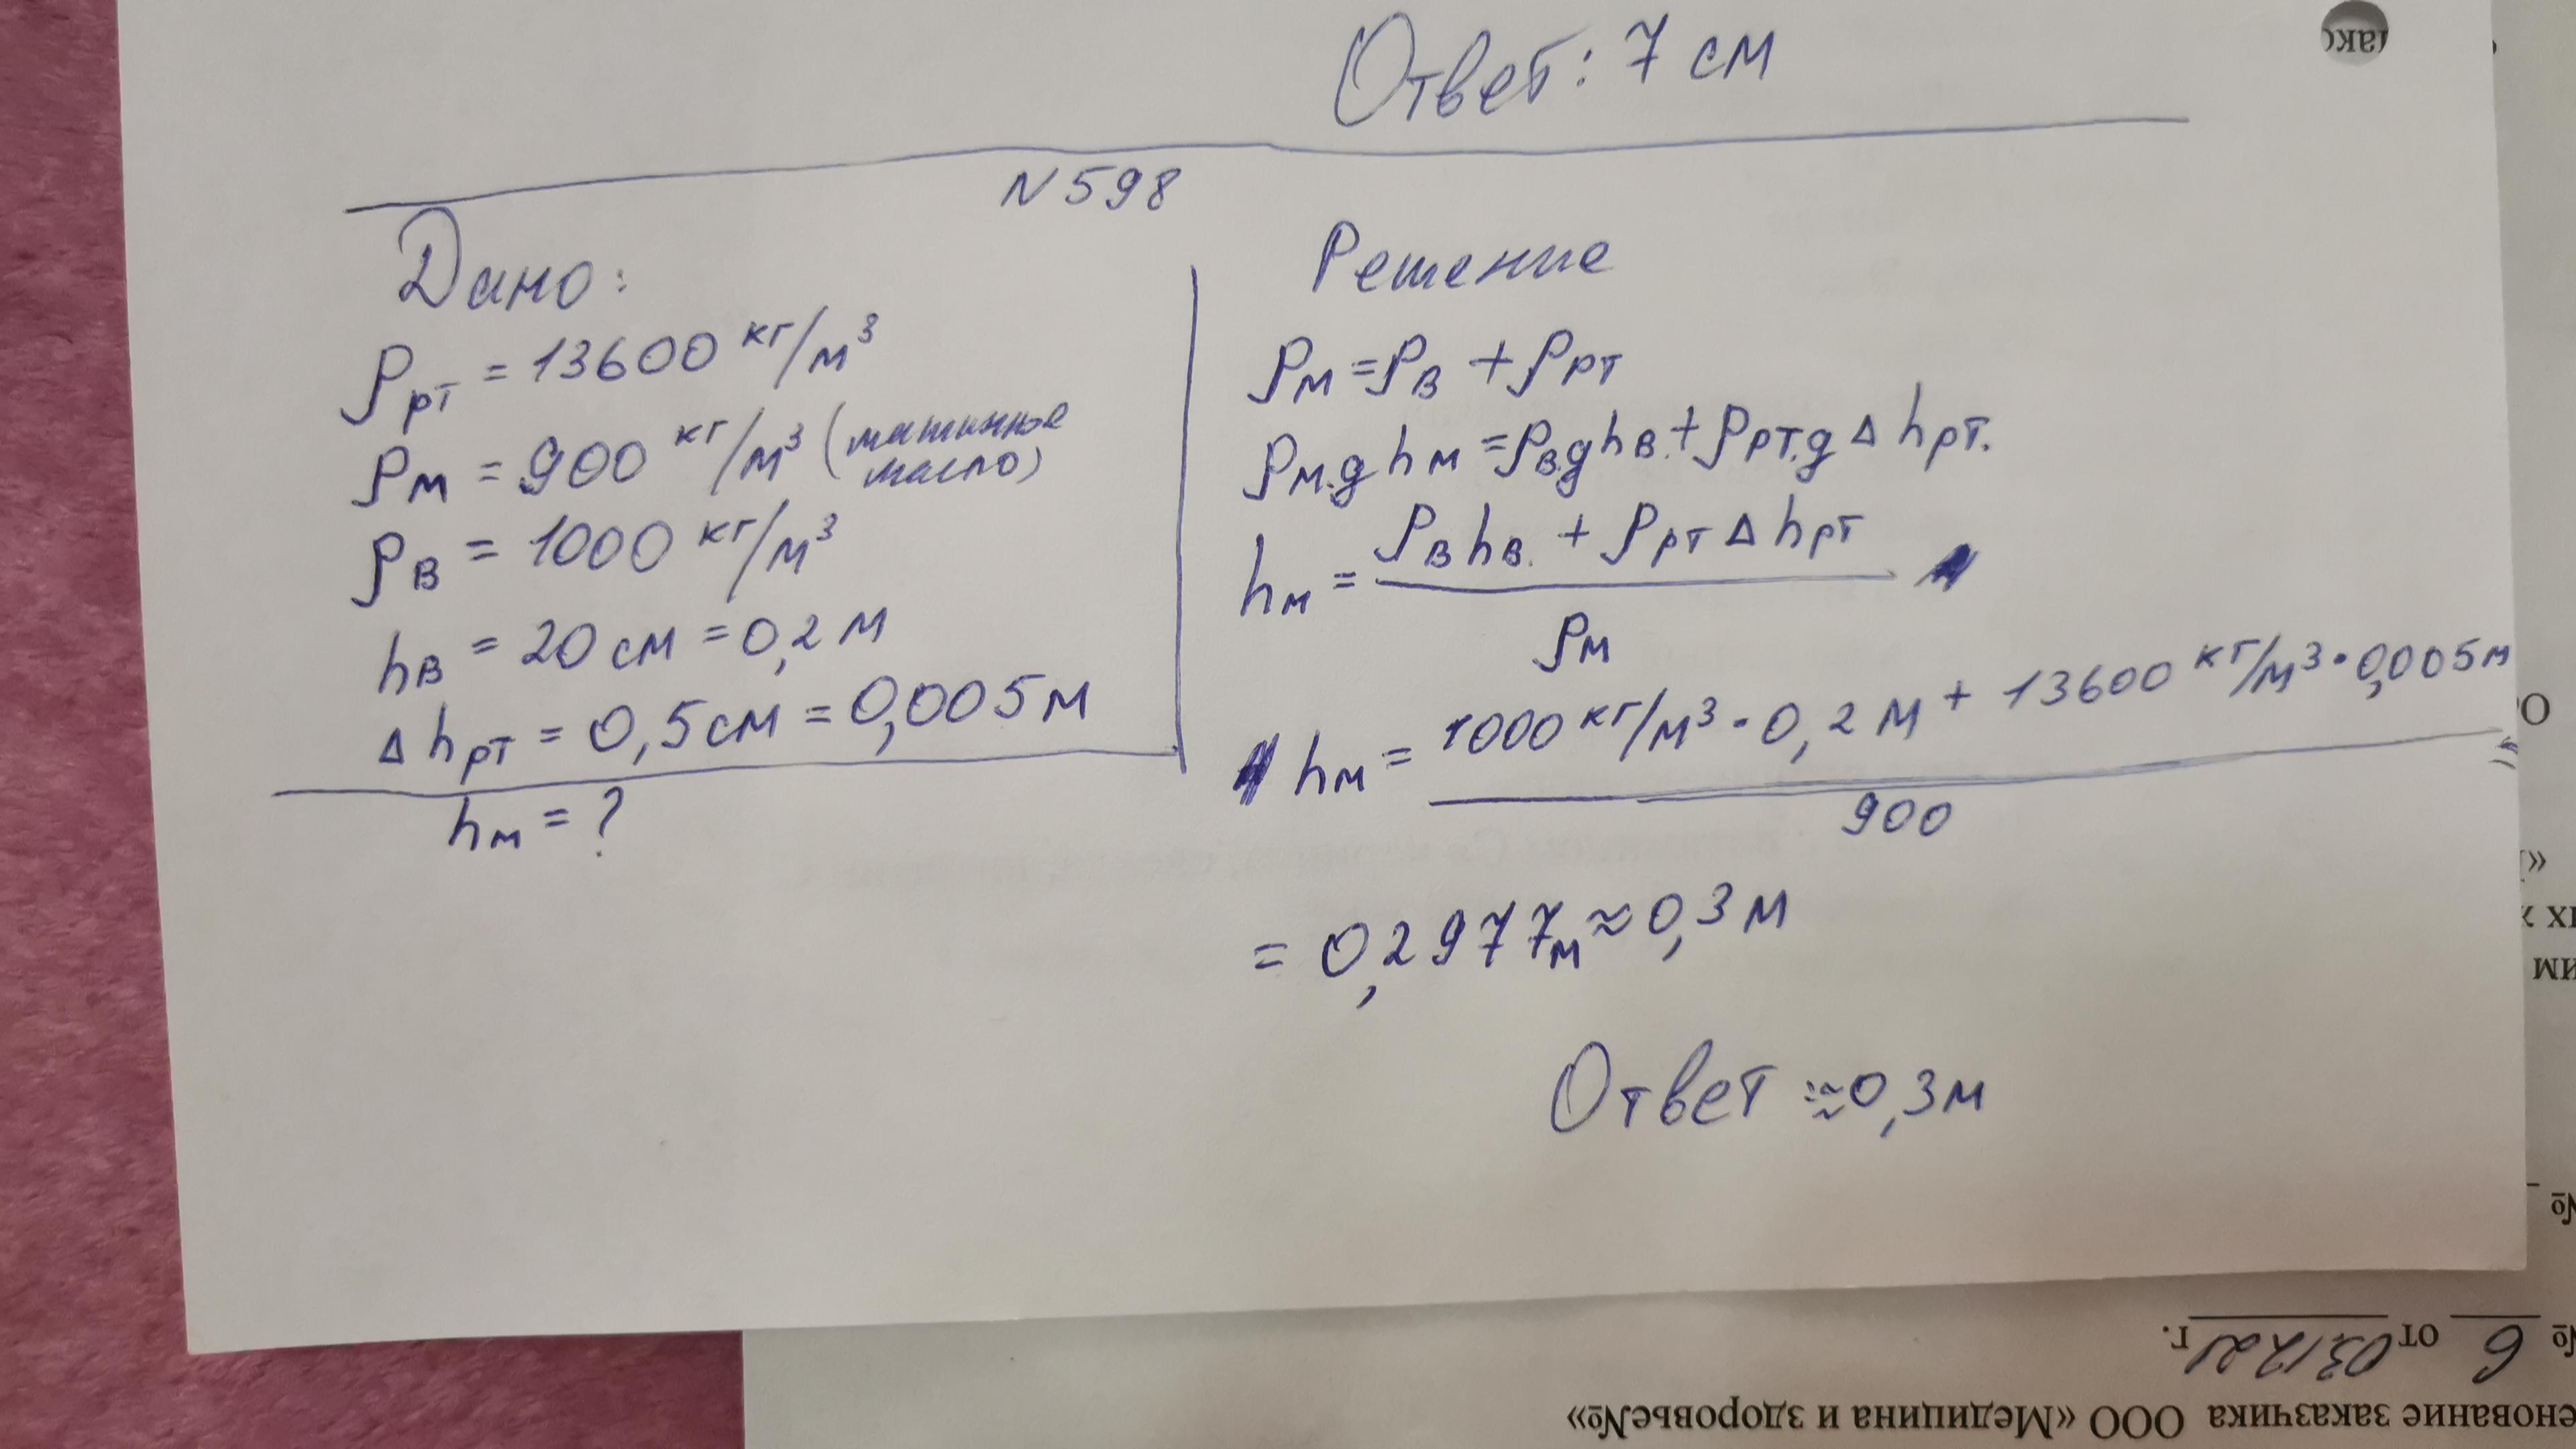 Ответ: 7 см
N 598
Дано:
ρрт = 13600 кг/м³
ρм = 900 кг/м³ (машинное
масло)
ρв = 1000 кг/м³
hв = 20 см = 0,2 м
Δhрт = 0,5 см = 0,005 м
hм = ?
Решение
ρм = ρв + ρрт
ρм.g hм = ρв.g hв. + ρрт.g Δ hрт.
hм = (ρв hв. + ρрт Δ hрт) / ρм
hм = (1000 кг/м³ · 0,2 м + 13600 кг/м³ · 0,005 м) / 900
= 0,2977 м ≈ 0,3 м
Ответ : ≈ 0,3 м
№ 6 от 03.12.21 г.
енование заказчика ООО «Медицина и здоровье№»